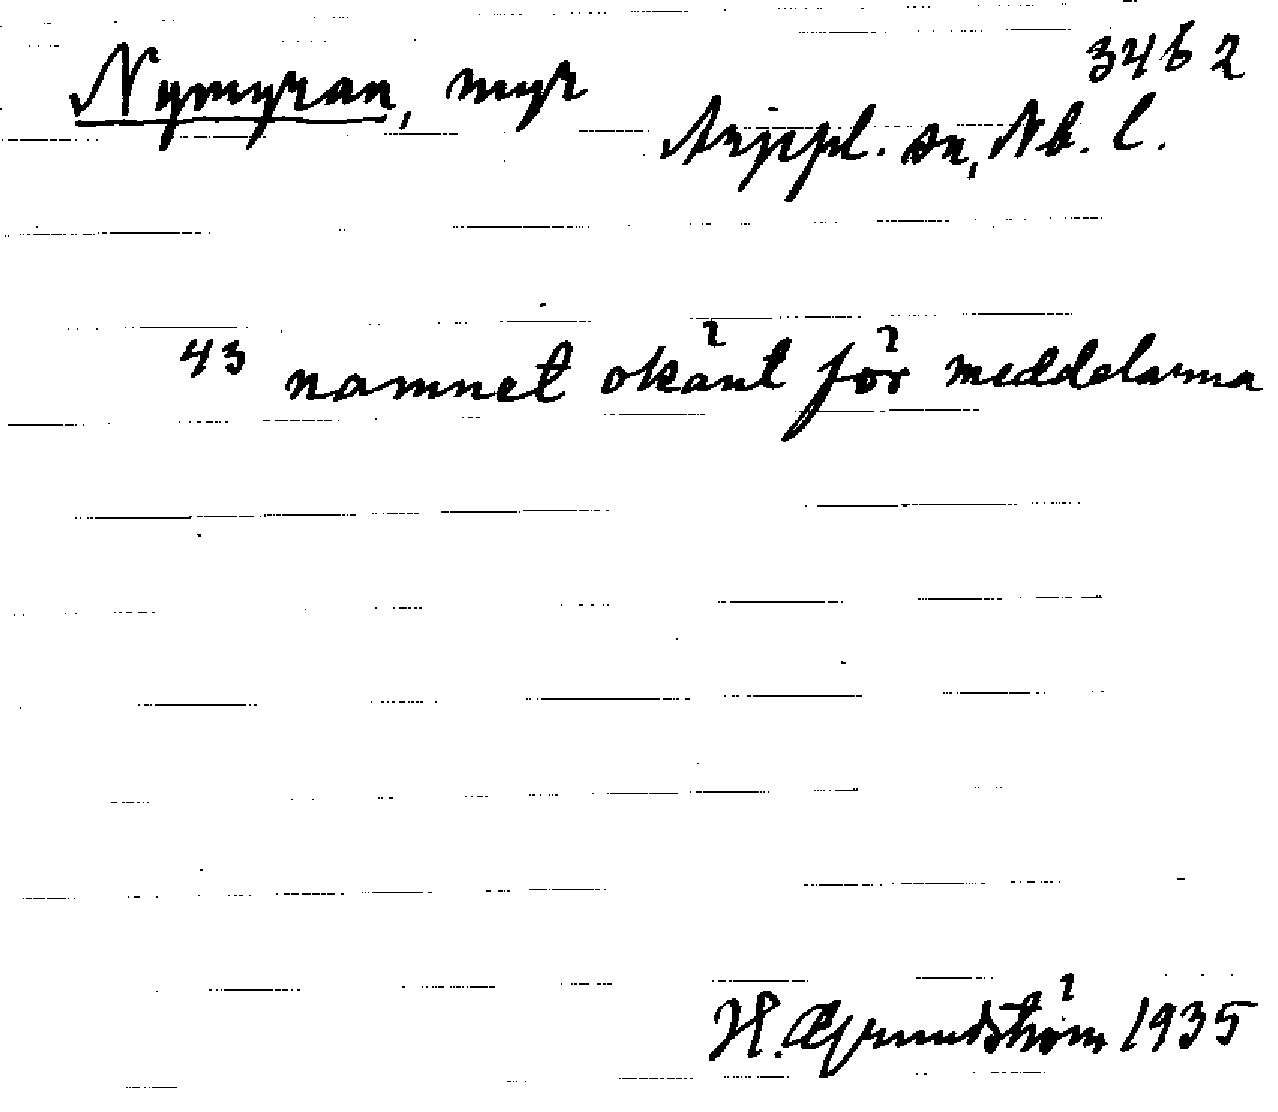 3462
Nymyran, myr
Arjepl. sn, Nb. l.
43 namnet okänt för meddelarna
H. Grundström 1935